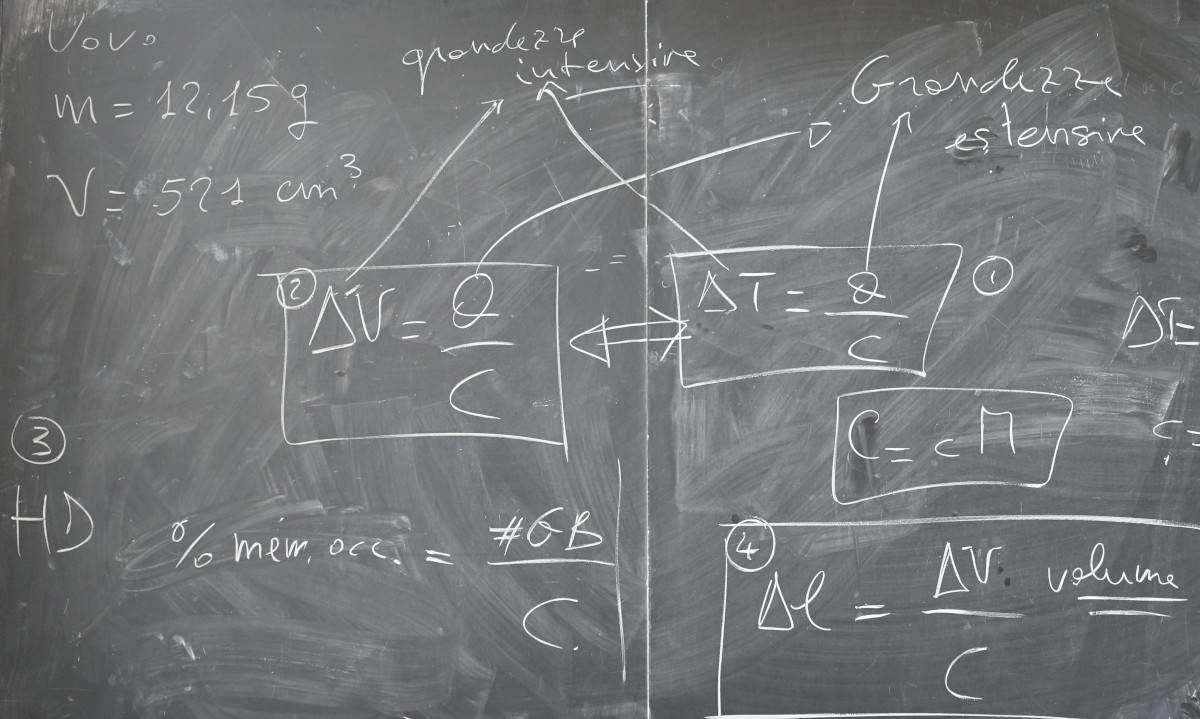 Uovo
m = 12,15 g
V = 521 cm³
grandezze
intensive
Grandezze
estensive
② ΔV = Q / C
⇔
ΔT = Q / C ①
ΔT =
C = c M
c =
③
HD
% mem. occ. = #GB / C
④
Δl = ΔV / C volume